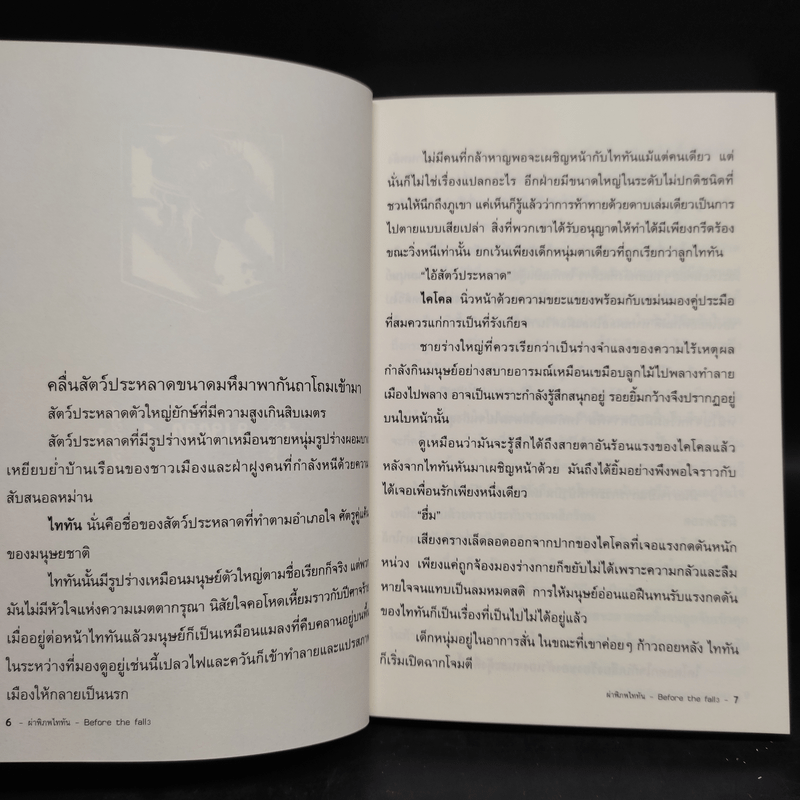 คลื่นสัตว์ประหลาดขนาดมหึมาพากันถาโถมเข้ามา
สัตว์ประหลาดตัวใหญ่ยักษ์ที่มีความสูงเกินสิบเมตร
สัตว์ประหลาดที่มีรูปร่างหน้าตาเหมือนชายหนุ่มรูปร่างผอมบาง
เหยียบย่ำบ้านเรือนของชาวเมืองและฝ่าฝูงคนที่กำลังหนีด้วยความ
สับสนอลหม่าน
ไททัน นั่นคือชื่อของสัตว์ประหลาดที่ทำตามอำเภอใจ ศัตรูคู่แค้น
ของมนุษยชาติ
ไททันนั้นมีรูปร่างเหมือนมนุษย์ตัวใหญ่ตามชื่อเรียกก็จริง แต่พวก
มันไม่มีหัวใจแห่งความเมตตากรุณา นิสัยใจคอโหดเหี้ยมราวกับปีศาจร้าย
เมื่ออยู่ต่อหน้าไททันแล้วมนุษย์ก็เป็นเหมือนแมลงที่คืบคลานอยู่บนพื้น
ในระหว่างที่มองดูอยู่เช่นนี้เปลวไฟและควันก็เข้าทำลายและแปรสภาพ
เมืองให้กลายเป็นนรก
6 - ผ่าพิภพไททัน - Before the fall3
ไม่มีคนที่กล้าหาญพอจะเผชิญหน้ากับไททันแม้แต่คนเดียว แต่
นั่นก็ไม่ใช่เรื่องแปลกอะไร อีกฝ่ายมีขนาดใหญ่ในระดับไม่ปกติชนิดที่
ชวนให้นึกถึงภูเขา แค่เห็นก็รู้แล้วว่าการท้าทายด้วยดาบเล่มเดียวเป็นการ
ไปตายแบบเสียเปล่า สิ่งที่พวกเขาได้รับอนุญาตให้ทำได้มีเพียงกรีดร้อง
ขณะวิ่งหนีเท่านั้น ยกเว้นเพียงเด็กหนุ่มตาเดียวที่ถูกเรียกว่าลูกไททัน
“ไอ้สัตว์ประหลาด”
ไคโคล นิ่วหน้าด้วยความขยะแขยงพร้อมกับเขม่นมองคู่ประมือ
ที่สมควรแก่การเป็นที่รังเกียจ
ชายร่างใหญ่ที่ควรเรียกว่าเป็นร่างจำแลงของความไร้เหตุผล
กำลังกินมนุษย์อย่างสบายอารมณ์เหมือนเขมือบลูกไม้ไปพลางทำลาย
เมืองไปพลาง อาจเป็นเพราะกำลังรู้สึกสนุกอยู่ รอยยิ้มกว้างจึงปรากฏอยู่
บนใบหน้านั้น
ดูเหมือนว่ามันจะรู้สึกได้ถึงสายตาอันร้อนแรงของไคโคลแล้ว
หลังจากไททันหันมาเผชิญหน้าด้วย มันถึงได้ยิ้มอย่างพึงพอใจราวกับ
ได้เจอเพื่อนรักเพียงหนึ่งเดียว
“ฮึ่ม”
เสียงครางเล็ดลอดออกจากปากของไคโคลที่เจอแรงกดดันหนัก
หน่วง เพียงแค่ถูกจ้องมองร่างกายก็ขยับไม่ได้เพราะความกลัวและลืม
หายใจจนแทบเป็นลมหมดสติ การให้มนุษย์อ่อนแอฝืนทนรับแรงกดดัน
ของไททันก็เป็นเรื่องที่เป็นไปไม่ได้อยู่แล้ว
เด็กหนุ่มอยู่ในอาการสั่น ในขณะที่เขาค่อยๆ ก้าวถอยหลัง ไททัน
ก็เริ่มเปิดฉากโจมตี
ผ่าพิภพไททัน - Before the fall3 - 7